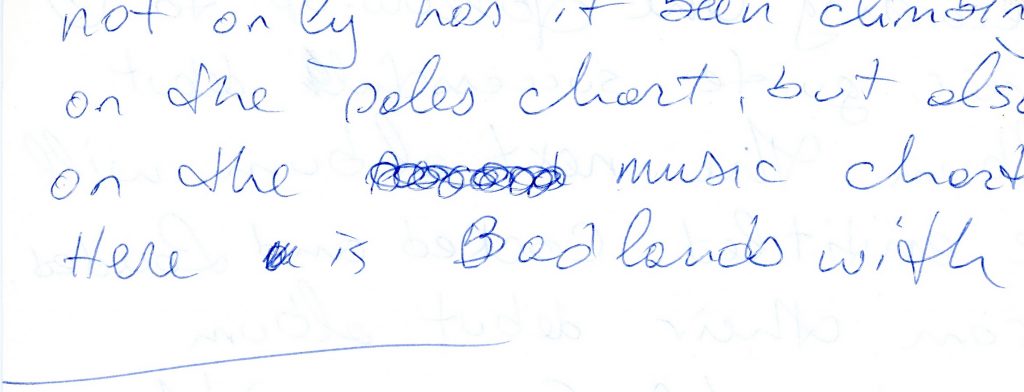 not only has it been climbin
on the sales chart, but also
on the music chart
Here is Badlands with